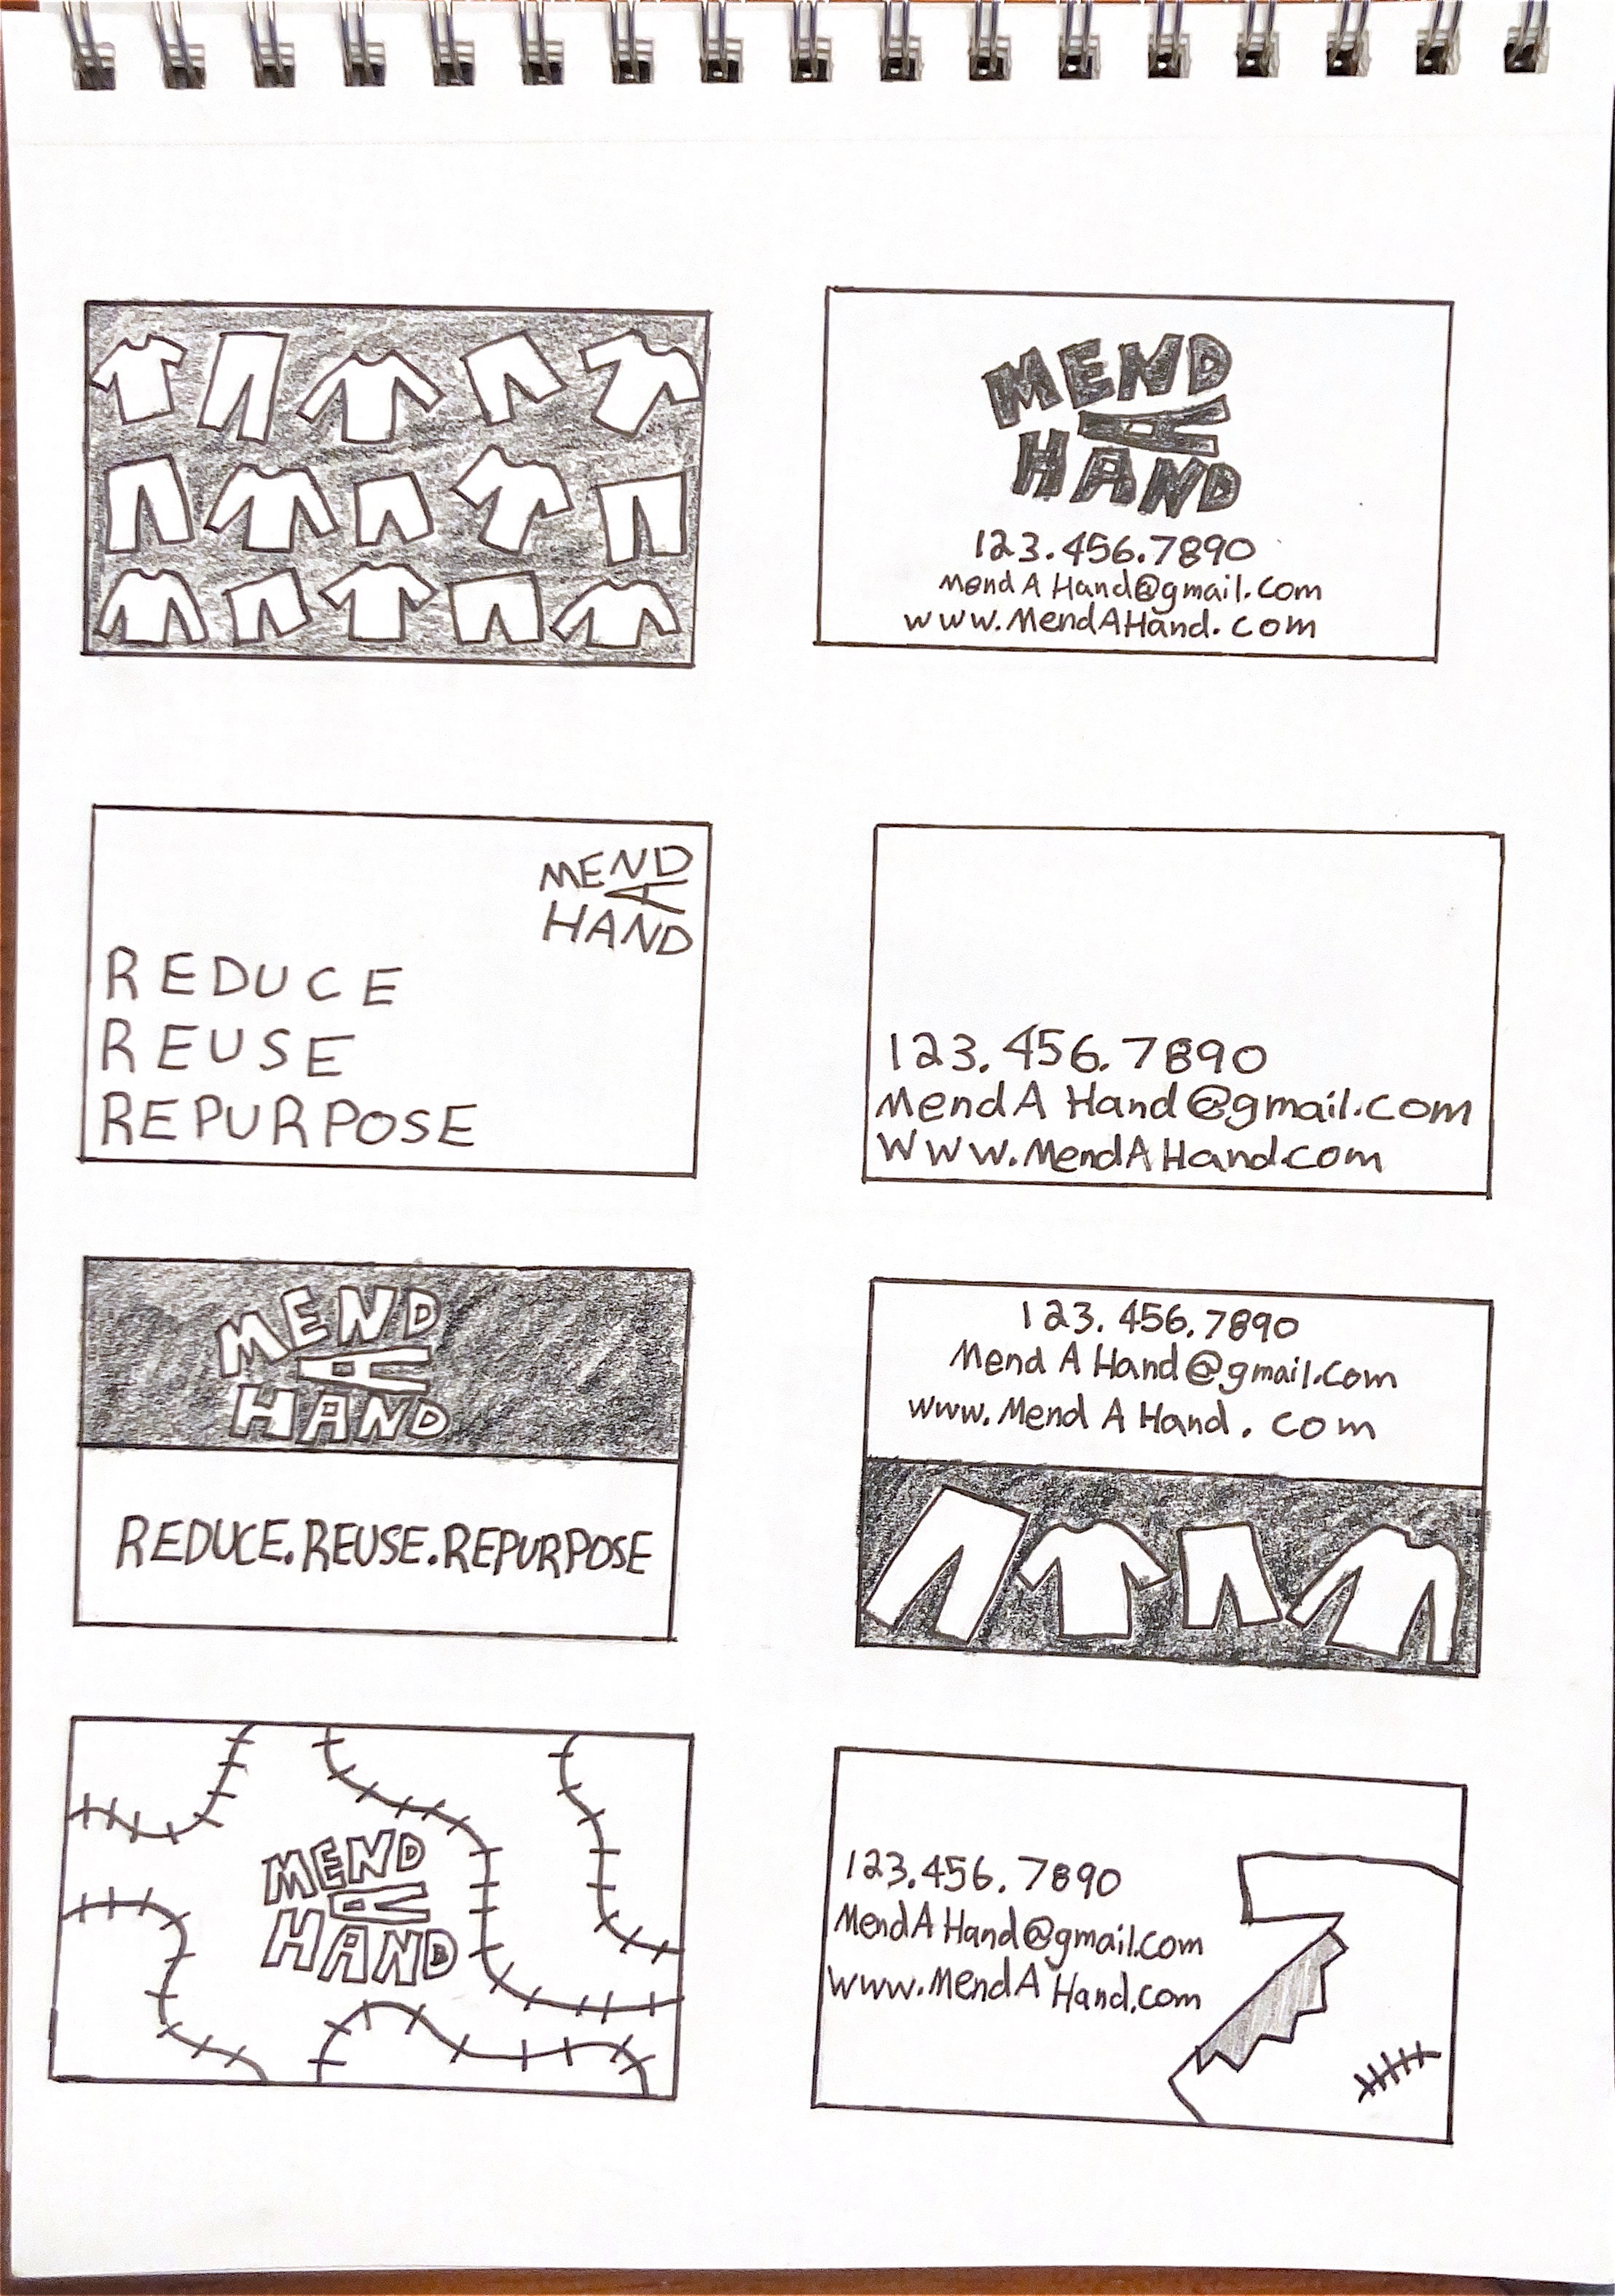 MEND
A
HAND
123.456.7890
MendAHand@gmail.com
www.MendAHand.com
MEND
A
HAND
REDUCE
REUSE
REPURPOSE
123.456.7890
MendAHand@gmail.com
www.MendAHand.com
MEND
A
HAND
REDUCE.REUSE.REPURPOSE
123.456.7890
MendAHand@gmail.com
www.MendAHand.com
MEND
A
HAND
123.456.7890
MendAHand@gmail.com
www.MendAHand.com